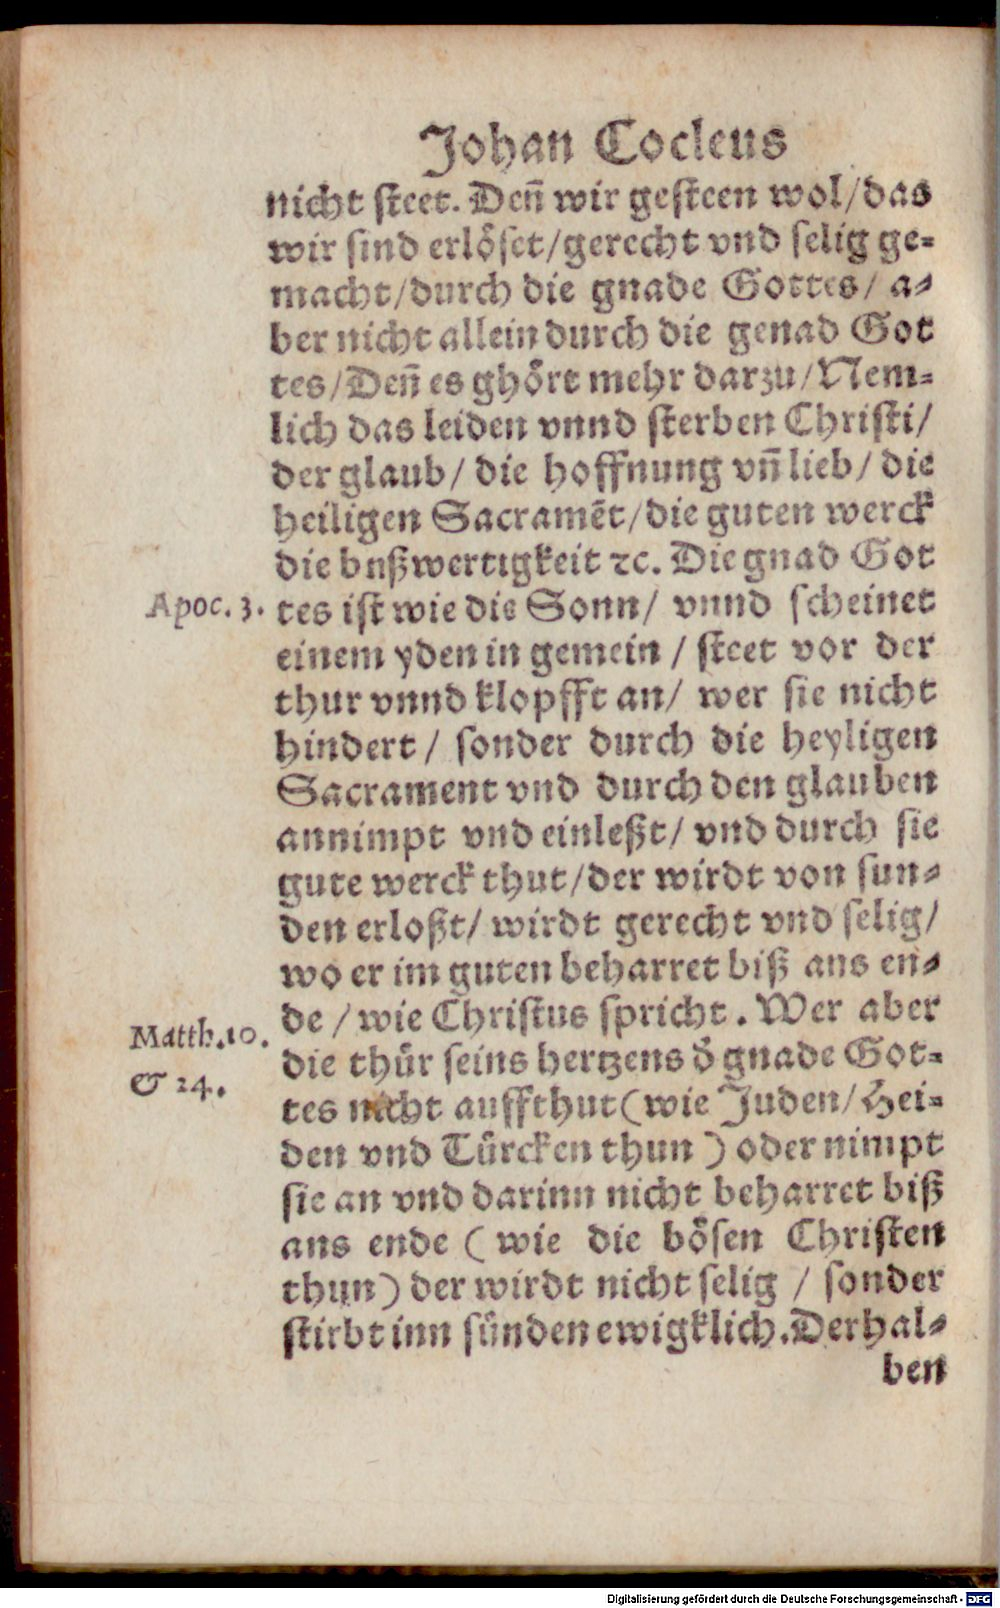 Johan Cocleus
nicht steet. Den̄ wir gesteen wol/das
wir sind erlöset/gerecht vnd selig ge-
macht/durch die gnade Gottes/ a-
ber nicht allein durch die genad Got
tes/Den̄ es ghört mehr darzu/Nem-
lich das leiden vnnd sterben Christi/
der glaub/ die hoffnung vn̄ lieb/ die
heiligen Sacramēt/die guten werck
die bußwertigkeit ꝛc. Die gnad Got
Apoc. 3. tes ist wie die Sonn/ vnnd scheinet
einem yden in gemein / steet vor der
thur vnnd klopfft an/ wer sie nicht
hindert / sonder durch die heyligen
Sacrament vnd durch den glauben
annimpt vnd einleßt/ vnd durch sie
gute werck thut/der wirdt von sun-
den erloßt/ wirdt gerecht vnd selig/
wo er im guten beharret biß ans en-
de / wie Christus spricht. Wer aber
Matth.10.
die thür seins hertzens d̄ gnade Got-
& 24.
tes nicht auffthut(wie Juden/Hei-
den vnd Türcken thun ) oder nimpt
sie an vnd darinn nicht beharret biß
ans ende ( wie die bösen Christen
thun) der wirdt nicht selig / sonder
stirbt inn sünden ewigklich.Derhal-
ben
Digitalisierung gefördert durch die Deutsche Forschungsgemeinschaft - DFG